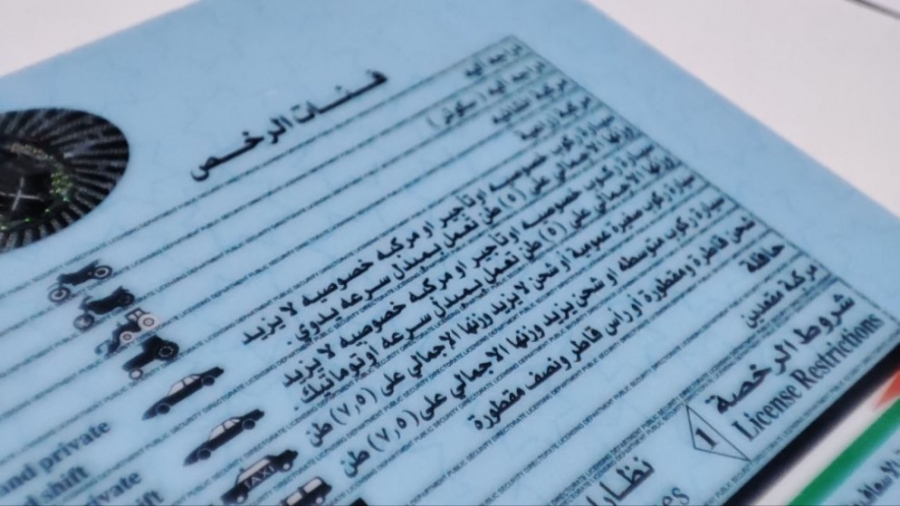 فئات الرخص
دراجة آلية
دراجة آلية (سكوتر)
مركبة انشائية
مركبة زراعية
سيارة ركوب خصوصية او تأجير او مركبة خصوصية لا يزيد
وزنها الاجمالي على (٥) طن تعمل بمبدل سرعة يدوي.
سيارة ركوب خصوصية او تأجير او مركبة خصوصية لا يزيد
وزنها الاجمالي على (٥) طن تعمل بمبدل سرعة اوتوماتيك.
سيارة ركوب صغيرة عمومية او شحن لا يزيد وزنها الاجمالي على (٧,٥) طن
سيارة ركوب متوسطة او شحن يزيد وزنها الاجمالي على (٧,٥) طن
شحن قاطرة ومقطورة او رأس قاطر ونصف مقطورة
حافلة
مركبة مقعدين
شروط الرخصة
License Restrictions
1
TAXI
and private
shift
private